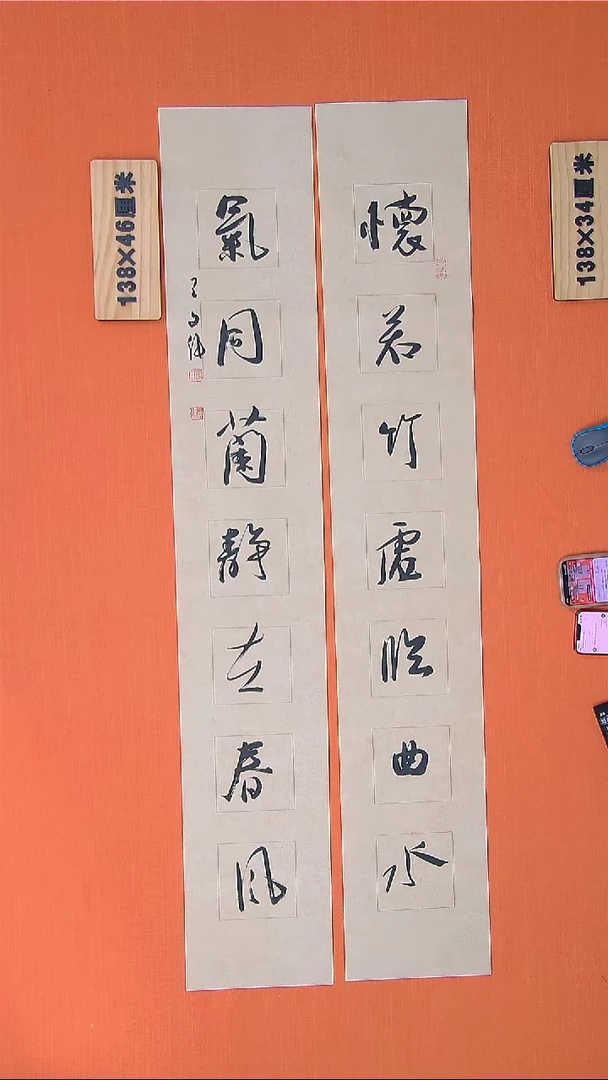 懷若竹虛臨曲水
氣同蘭靜在春風
138×46厘米
138×34厘米